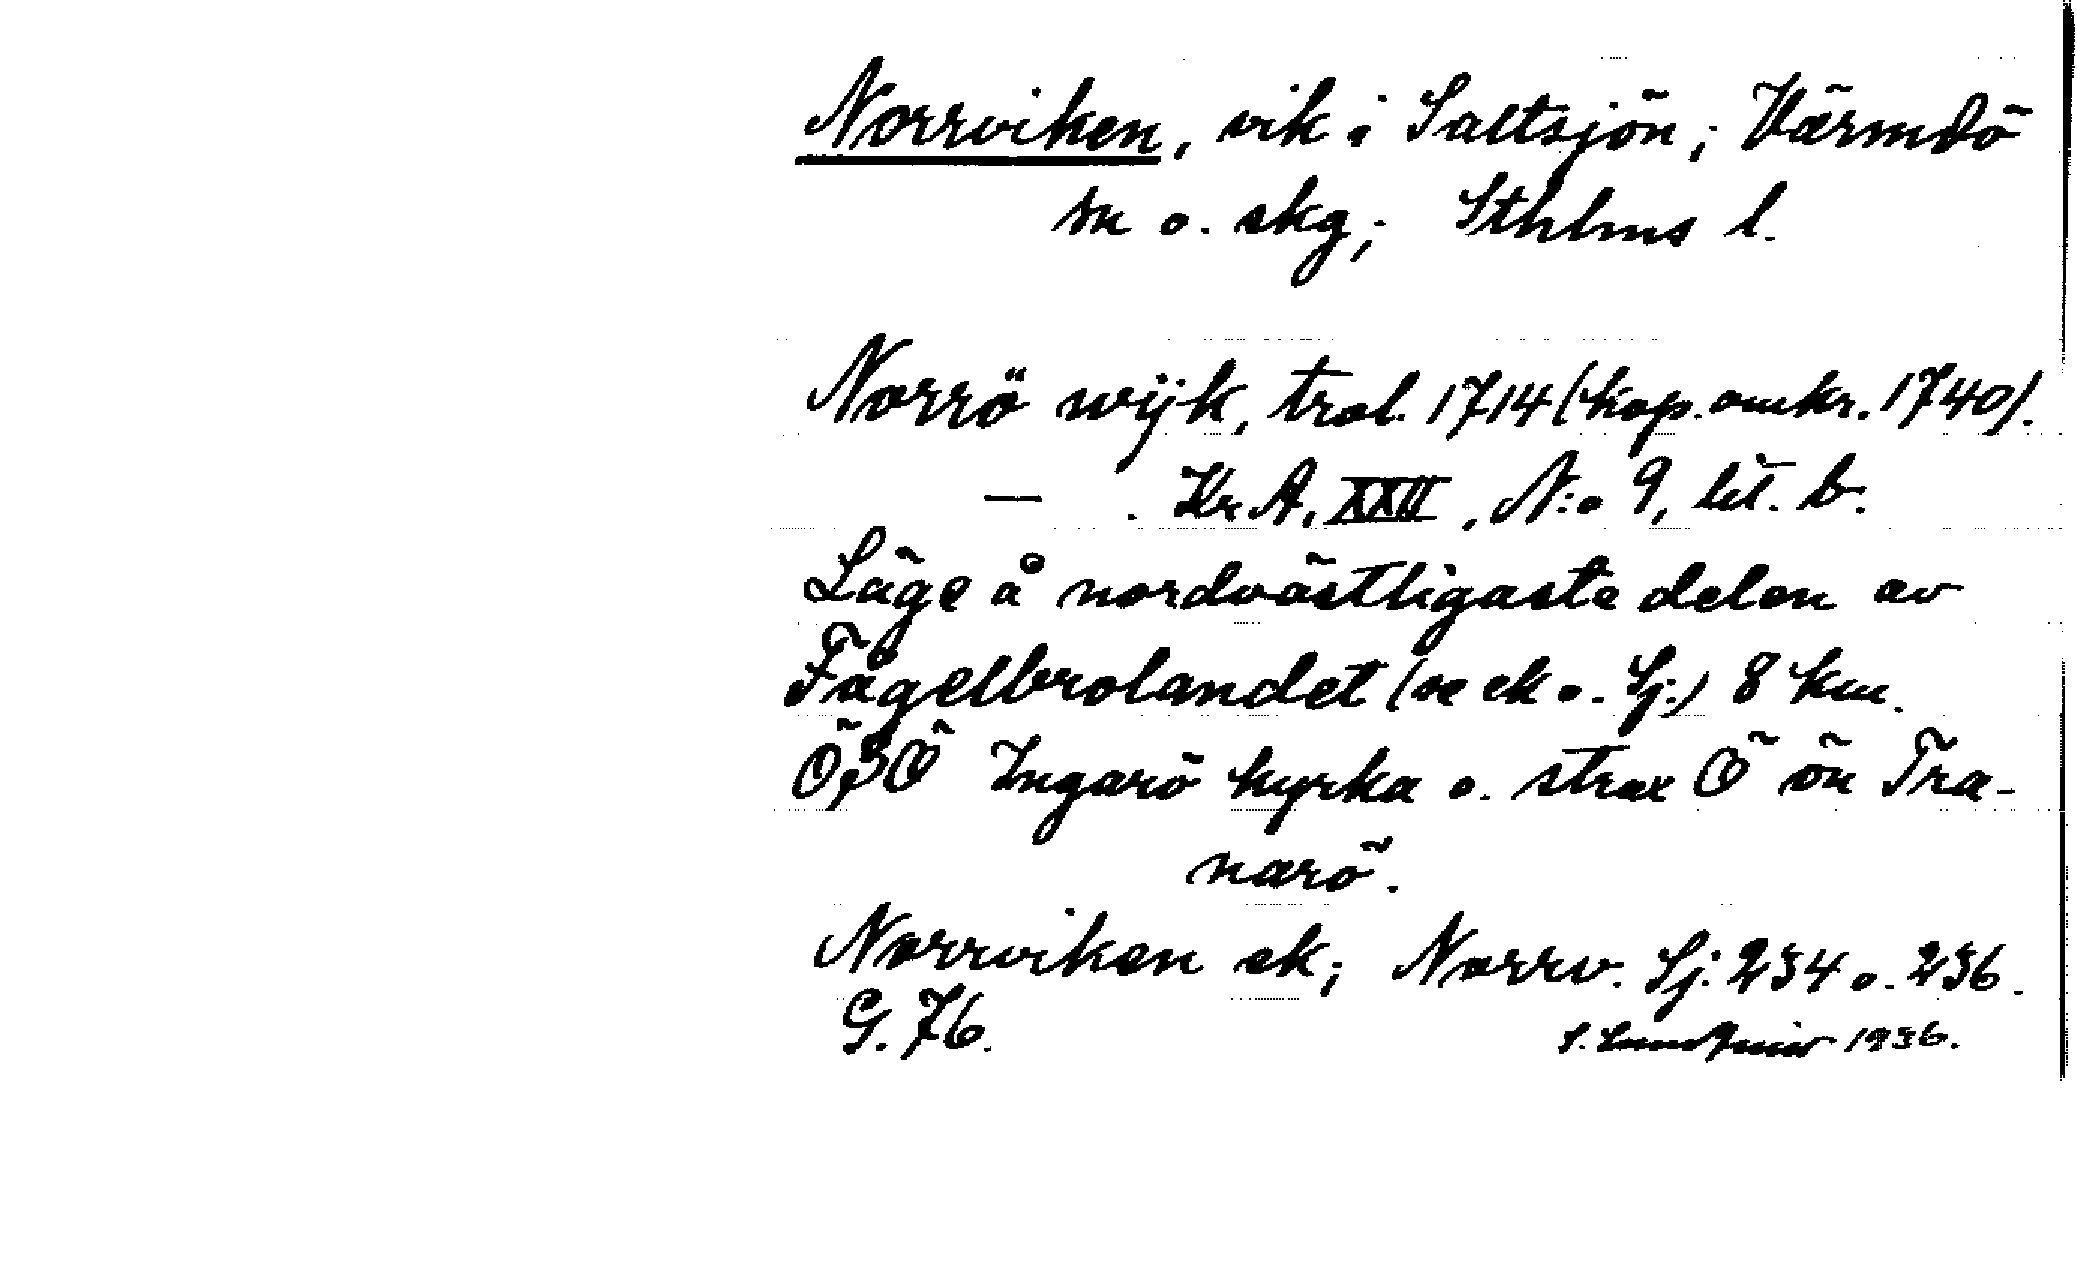 Norrviken, vik i Saltsjön; Värmdö
sn o. skg; Sthlms l.
Norrö wijk, trol. 1714 (kop. omkr. 1740).
— . Kr. A. XXII, N:o 9, lit. b.
Läge å nordvästligaste delen av
Fågelbrolandet (se ek o. Sj.) 8 km.
ÖSÖ Ingarö kyrka o. strax Ö ön Tra-
narö.
Norrviken ek; Norrv. Sj. 234 o. 236.
G. 76.
S. 1936.